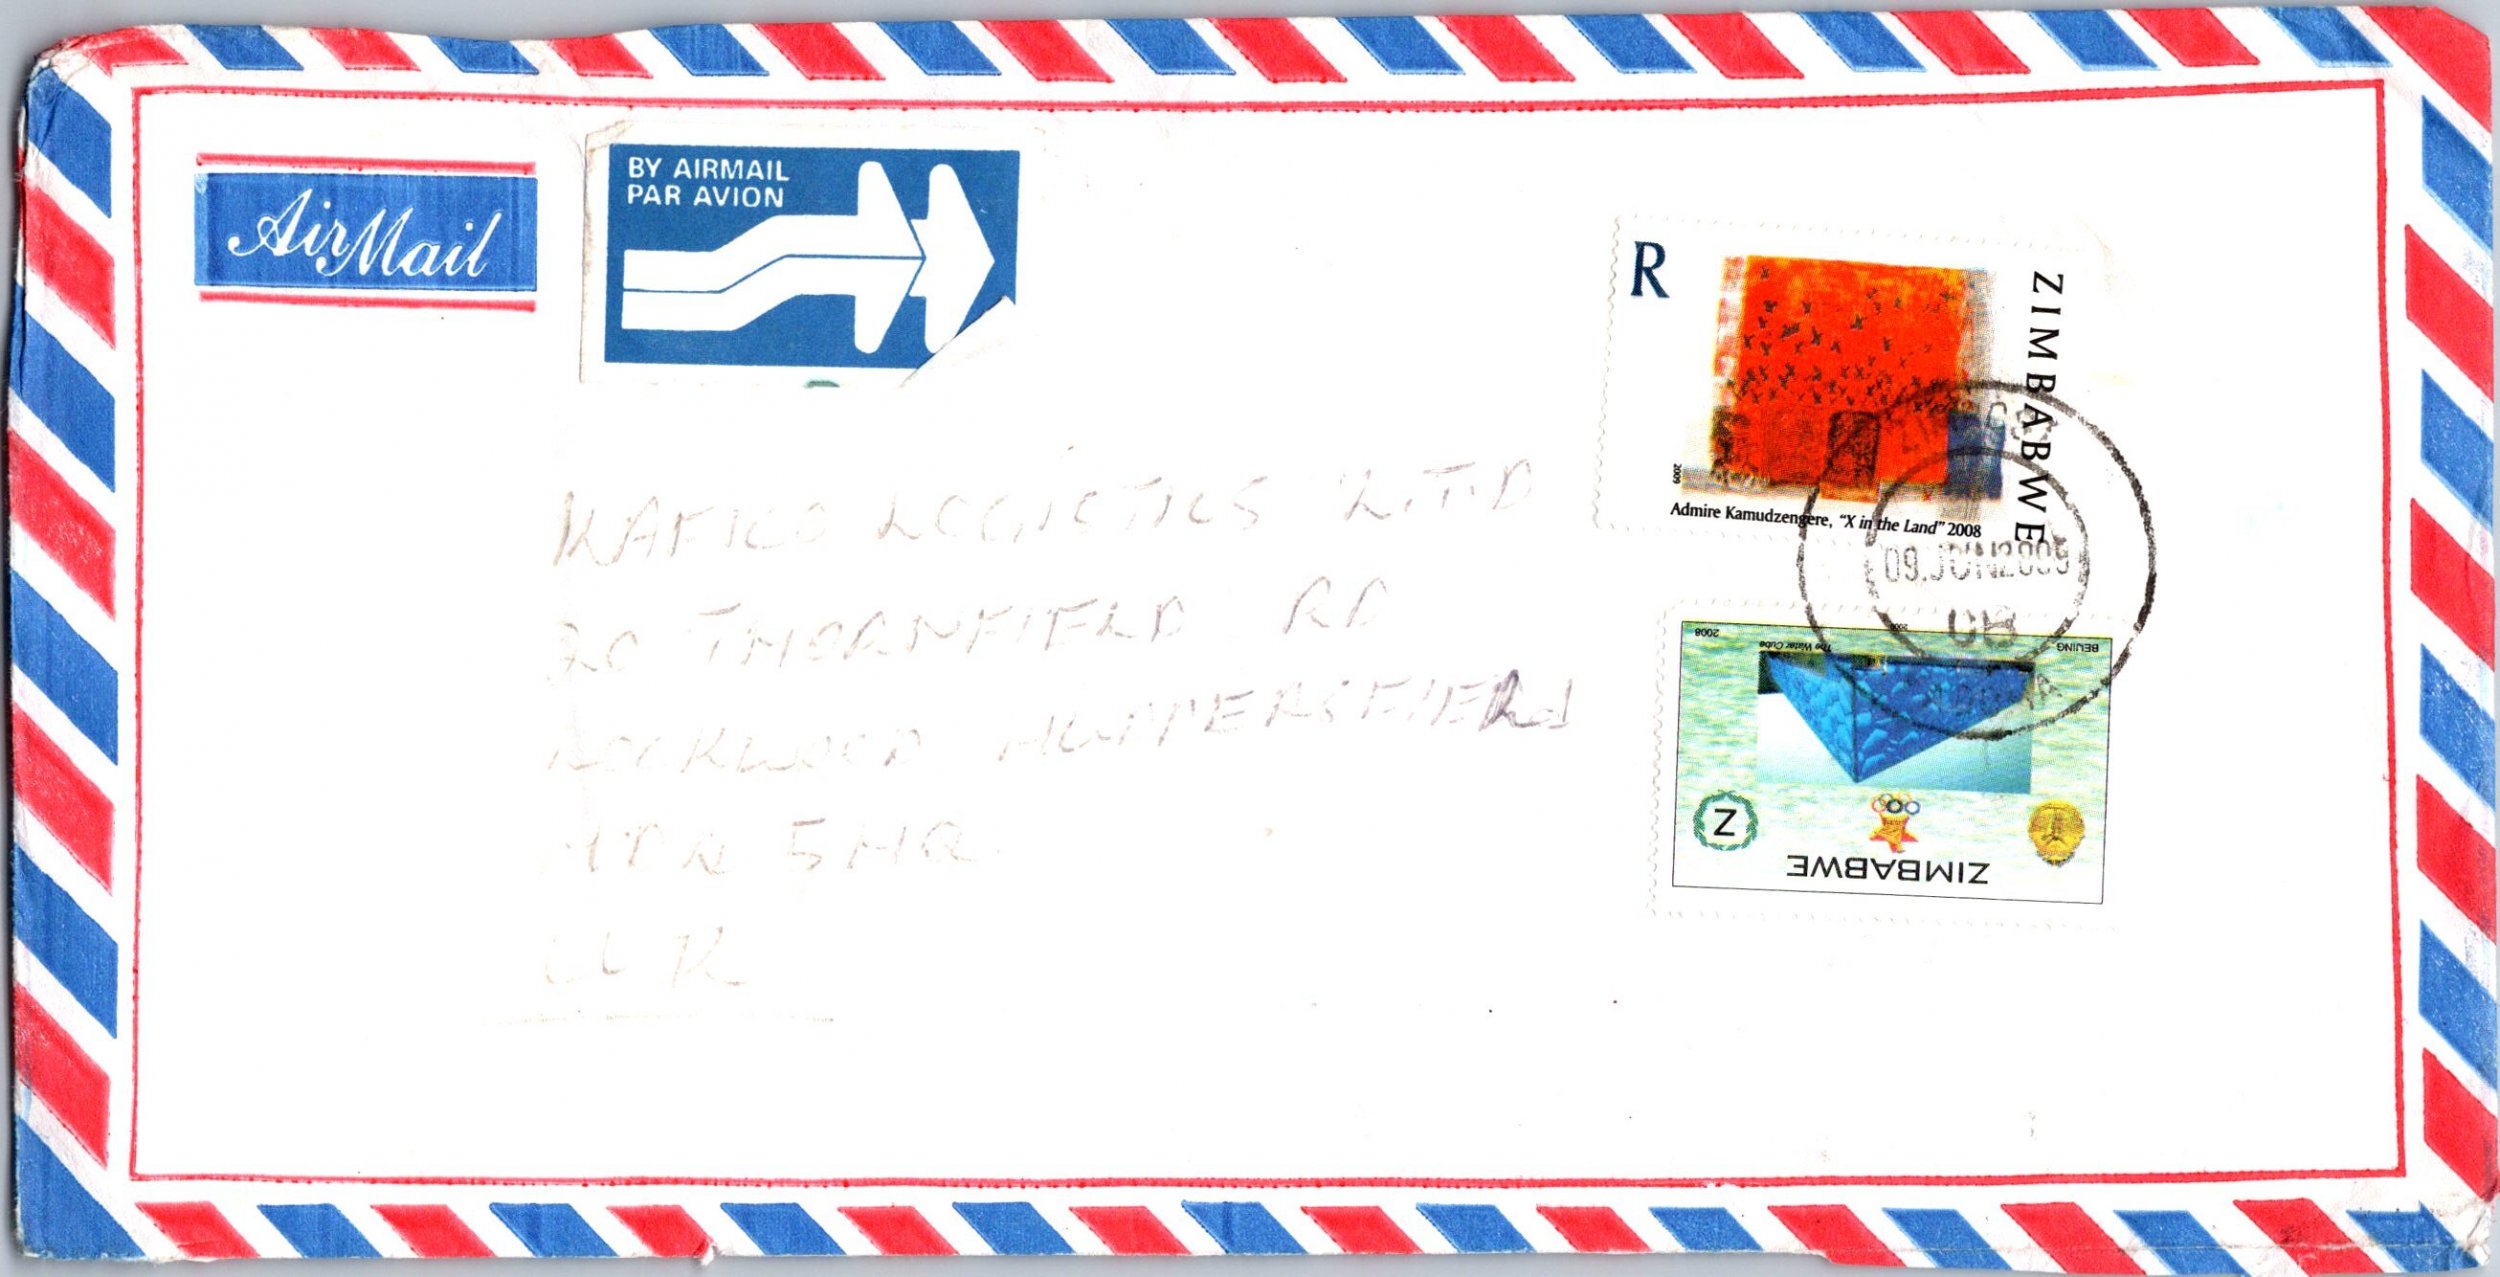 Air Mail
BY AIRMAIL
PAR AVION
R
ZIMBABWE
2009
Admire Kamudzengere, "X in the Land" 2008
09.JUN2009
08
KAFICO LOGISTICS LTD
20 THORNFIELD RD
LOCKWOOD HUDDERSFIELD
5HR
UK
2008
The Water Cube
2008
BEIJING
Z
ZIMBABWE